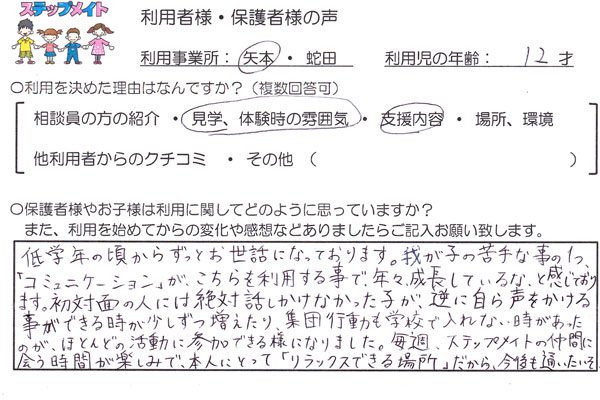 ステップメイト
利用者様・保護者様の声
利用事業所： 矢本 ・ 蛇田　利用児の年齢： 12 才
○利用を決めた理由はなんですか？（複数回答可）
相談員の方の紹介 ・ 見学、体験時の雰囲気 ・ 支援内容 ・ 場所、環境
他利用者からのクチコミ ・ その他 （　　　）
○保護者様やお子様は利用に関してどのように思っていますか？
また、利用を始めてからの変化や感想などありましたらご記入お願い致します。
低学年の頃からずっとお世話になっております。我が子の苦手な事の1つ、
「コミュニケーション」が、こちらを利用する事で、年々、成長しているな、と感じており
ます。初対面の人には絶対話しかけなかった子が、逆に自ら声をかける
事ができる時が少しずつ増えたり、集団行動も学校で入れない時があった
のが、ほとんどの活動に参加できる様になりました。毎週、ステップメイトの仲間に
会う時間が楽しみで、本人にとって「リラックスできる場所」だから、今後も通いたいそ